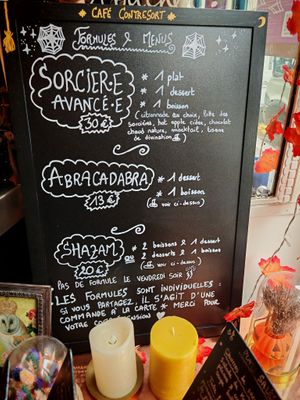 CAFÉ CONTRESORT
FORMULES & MENUS
SORCIER·E
AVANCÉ·E
30 €
* 1 plat
* 1 dessert
* 1 boisson
(citronnade au choix, bière des
sorcières, hot apple cider, chocolat
chaud nature, mocktail, tisane
de divination)
ABRACADABRA
13 €
* 1 dessert
* 1 boisson
(voir ci-dessus)
SHAZAM
20 €
* 2 boissons & 1 dessert
ou 2 desserts & 1 boisson
(voir ci-dessus)
PAS DE FORMULE LE VENDREDI SOIR
LES FORMULES SONT INDIVIDUELLES :
SI VOUS PARTAGEZ, IL S'AGIT D'UNE
COMMANDE À LA CARTE * MERCI POUR
VOTRE COMPRÉHENSION